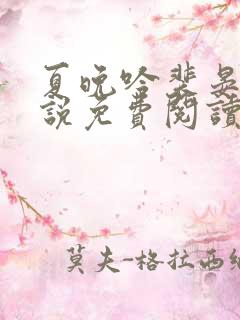 夏晚吟裴晏
說免費閱讀
莫夫-格拉西